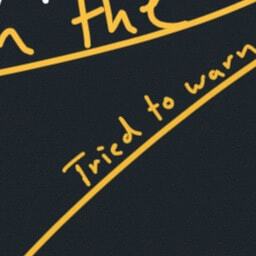 the
Tried to warn